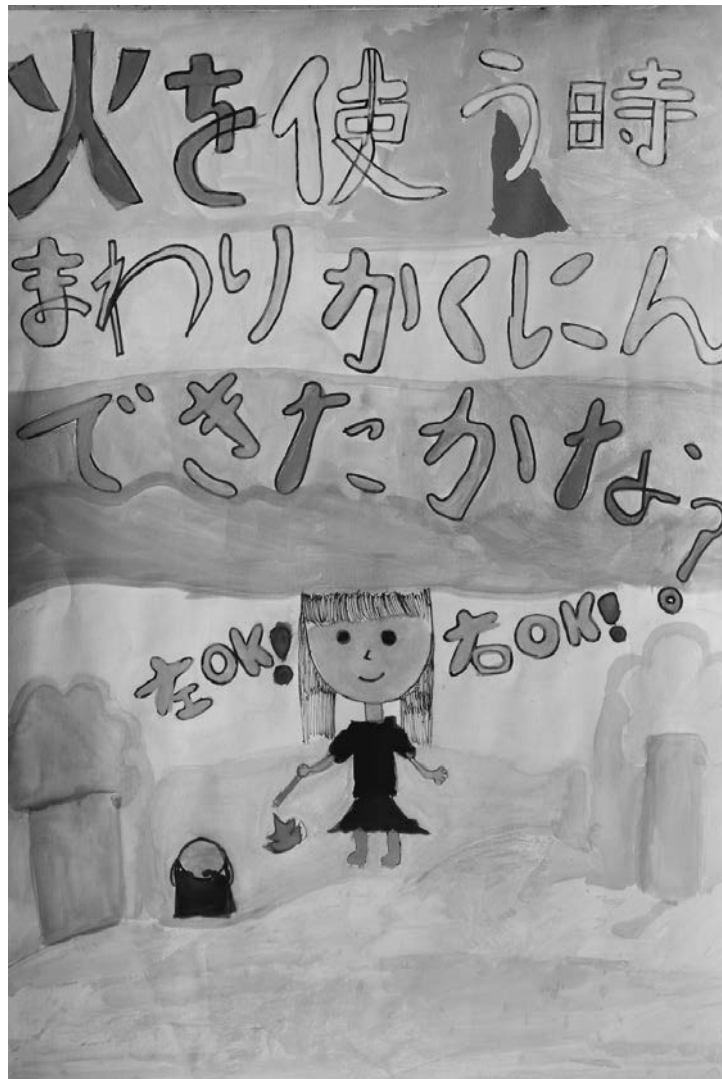 火を使う時
まわりかくにん
できたかな?
左OK!
右OK!